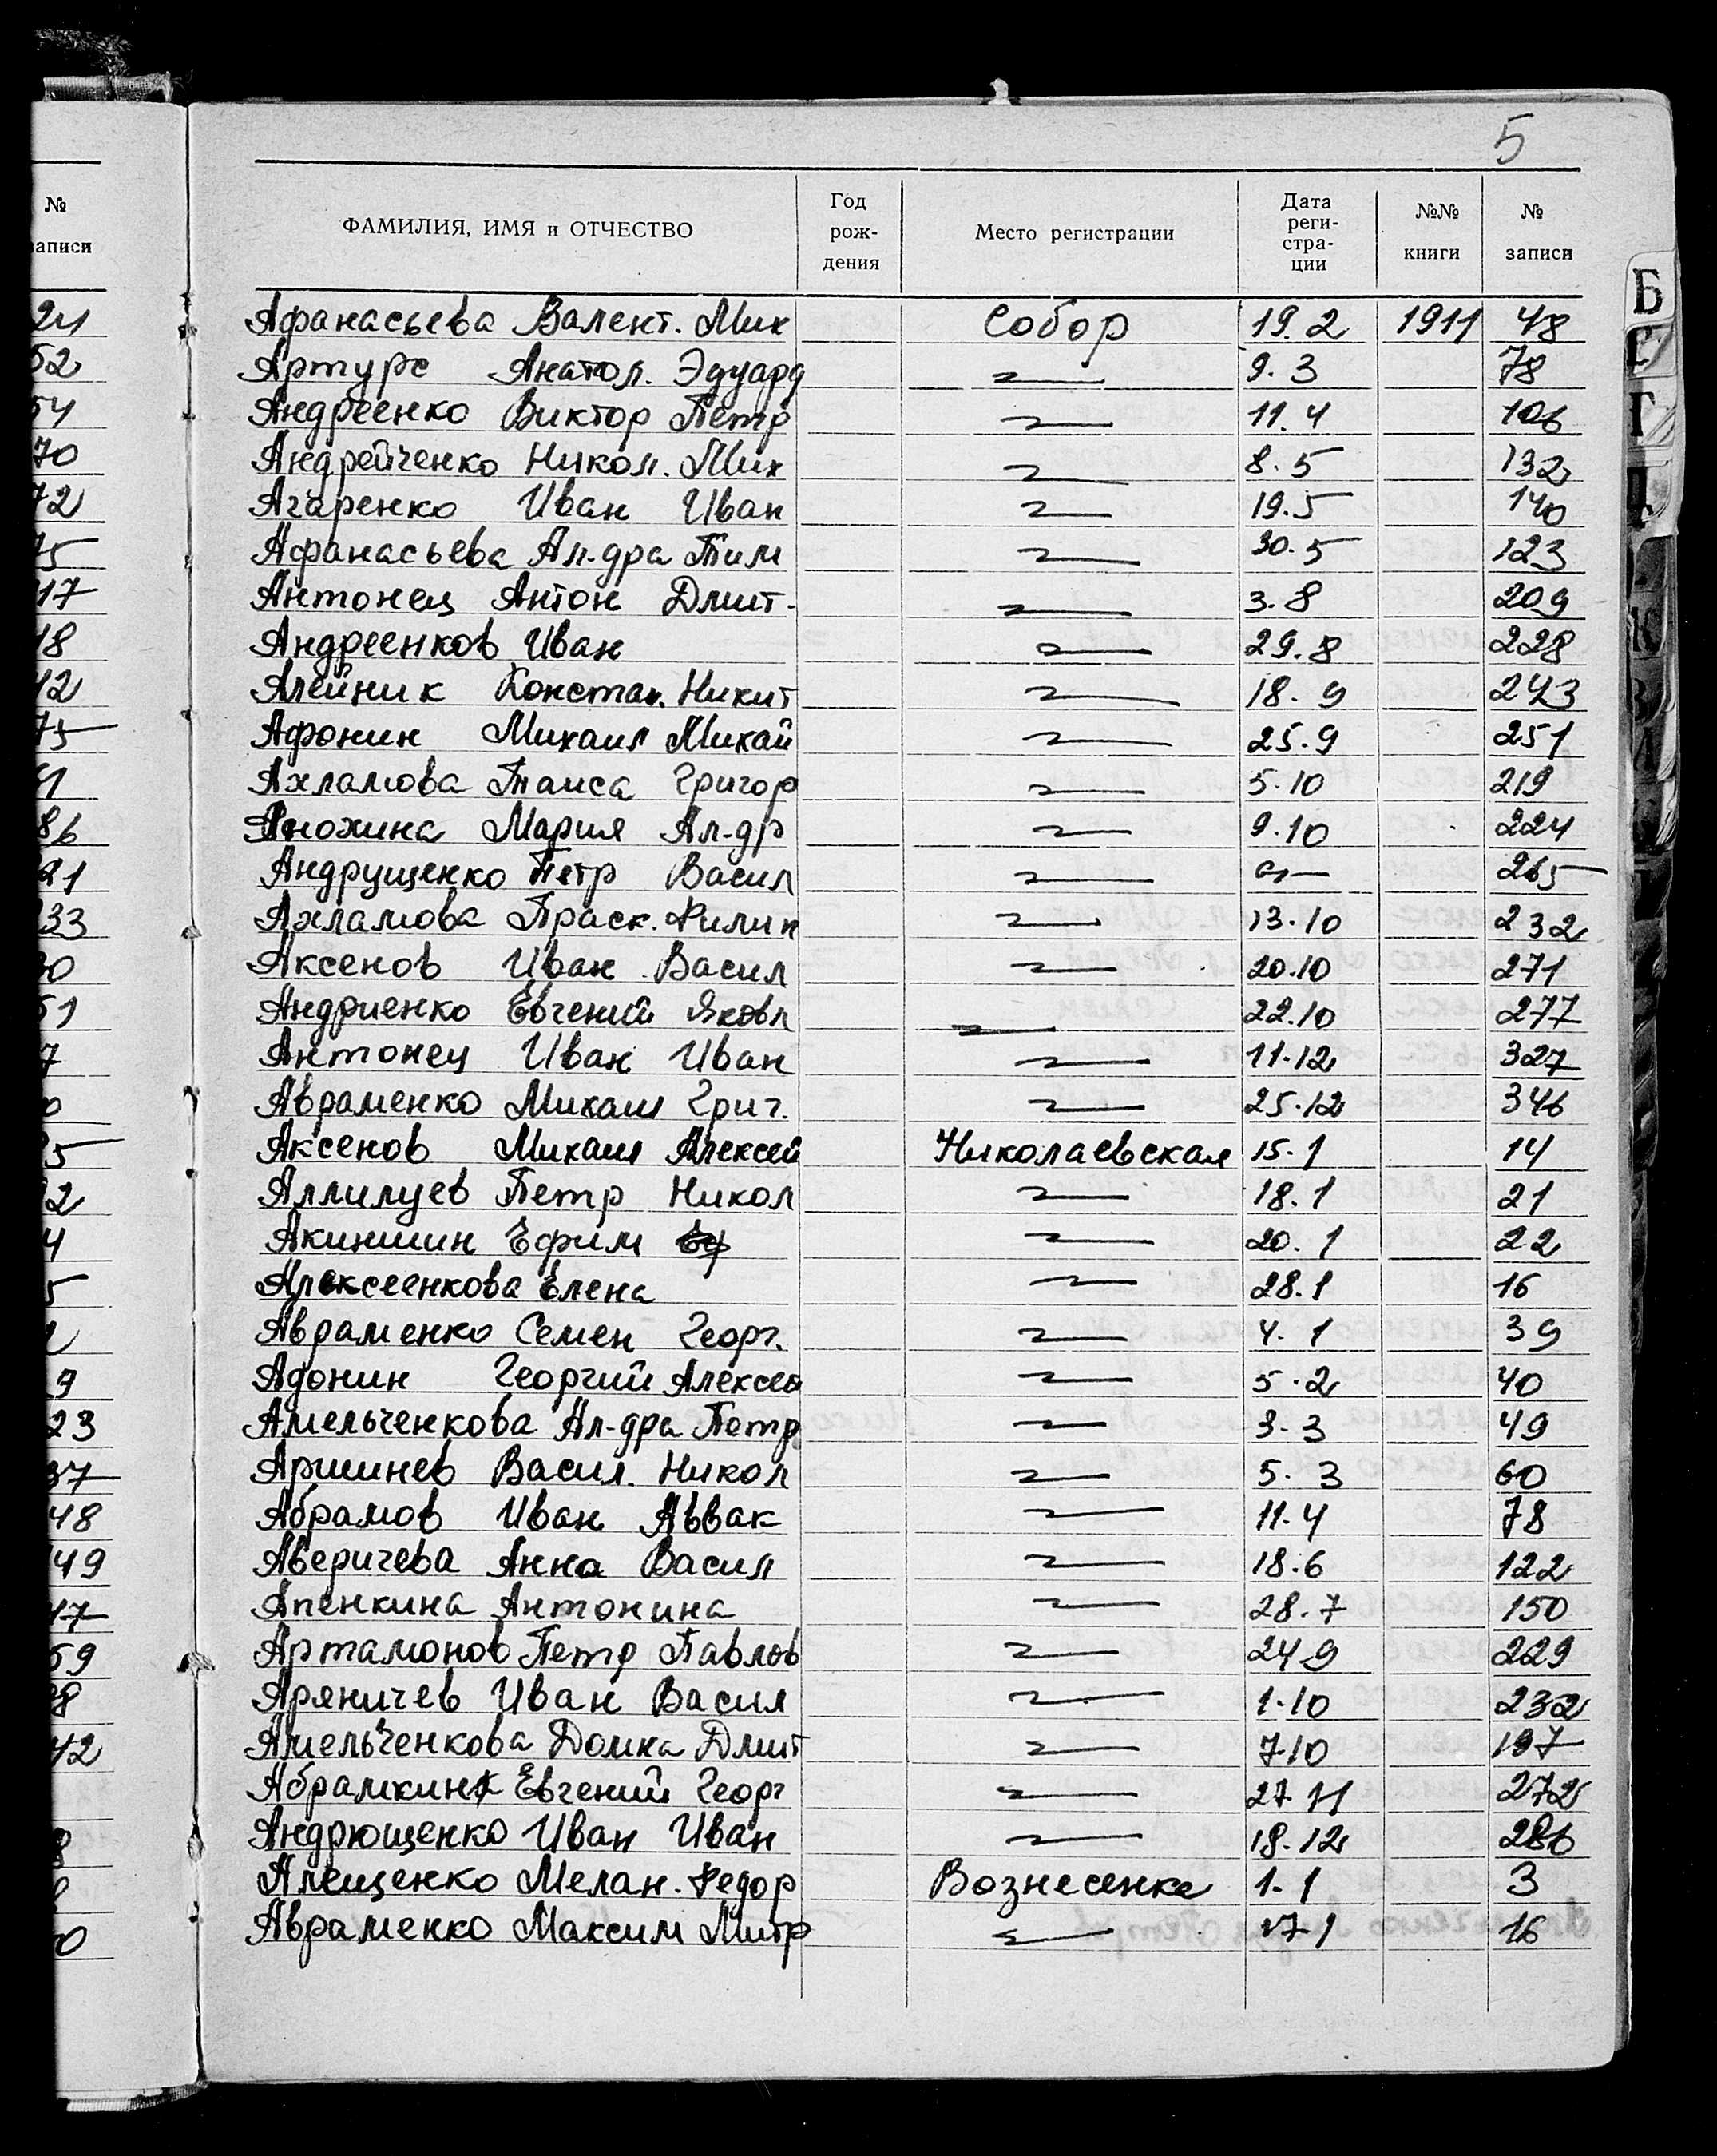 5
№ записи
ФАМИЛИЯ, ИМЯ и ОТЧЕСТВО Год рождения Место регистрации Дата регистрации №№ книги № записи
Афанасьева Валент. Мих Собор 19.2 1911 48
Артурс Анатол. Эдуард 9.3 78
Андреенко Виктор Петр 11.4 106
Андрейченко Никол. Мих 8.5 132
Агаренко Иван Иван 19.5 140
Афанасьева Ал-дра Тим 30.5 123
Антонец Антон Дмит. 3.8 209
Андреенков Иван 29.8 228
Алейник Констан. Никит 18.9 243
Афонин Михаил Михай 25.9 251
Ахламова Таиса Григор 5.10 219
Анохина Мария Ал-др 9.10 224
Андрущенко Петр Васил 265
Ахламова Праск. Филип 13.10 232
Аксенов Иван Васил 20.10 271
Андриенко Евгений Яковл 22.10 277
Антонец Иван Иван 11.12 327
Авраменко Михаил Григ. 25.12 346
Аксенов Михаил Алексей Николаевская 15.1 14
Аллилуев Петр Никол 18.1 21
Акиншин Ефим 20.1 22
Алексеенкова Елена 28.1 16
Авраменко Семен Георг. 4.1 39
Адонин Георгий Алексей 5.2 40
Амельченкова Ал-дра Петр 3.3 49
Аршинев Васил. Никол 5.3 60
Абрамов Иван Аввак 11.4 78
Аверичева Анна Васил 18.6 122
Апенкина Антонина 28.7 150
Артамонов Петр Павлов 24.9 229
Аряничев Иван Васил 1.10 232
Амельченкова Домна Дмит 7.10 197
Абрамкин Евгений Георг 27.11 272
Андрющенко Иван Иван 18.12 286
Алещенко Мелан. Федор Вознесенке 1.1 3
Авраменко Максим Митр 17.1 16
Б
Г